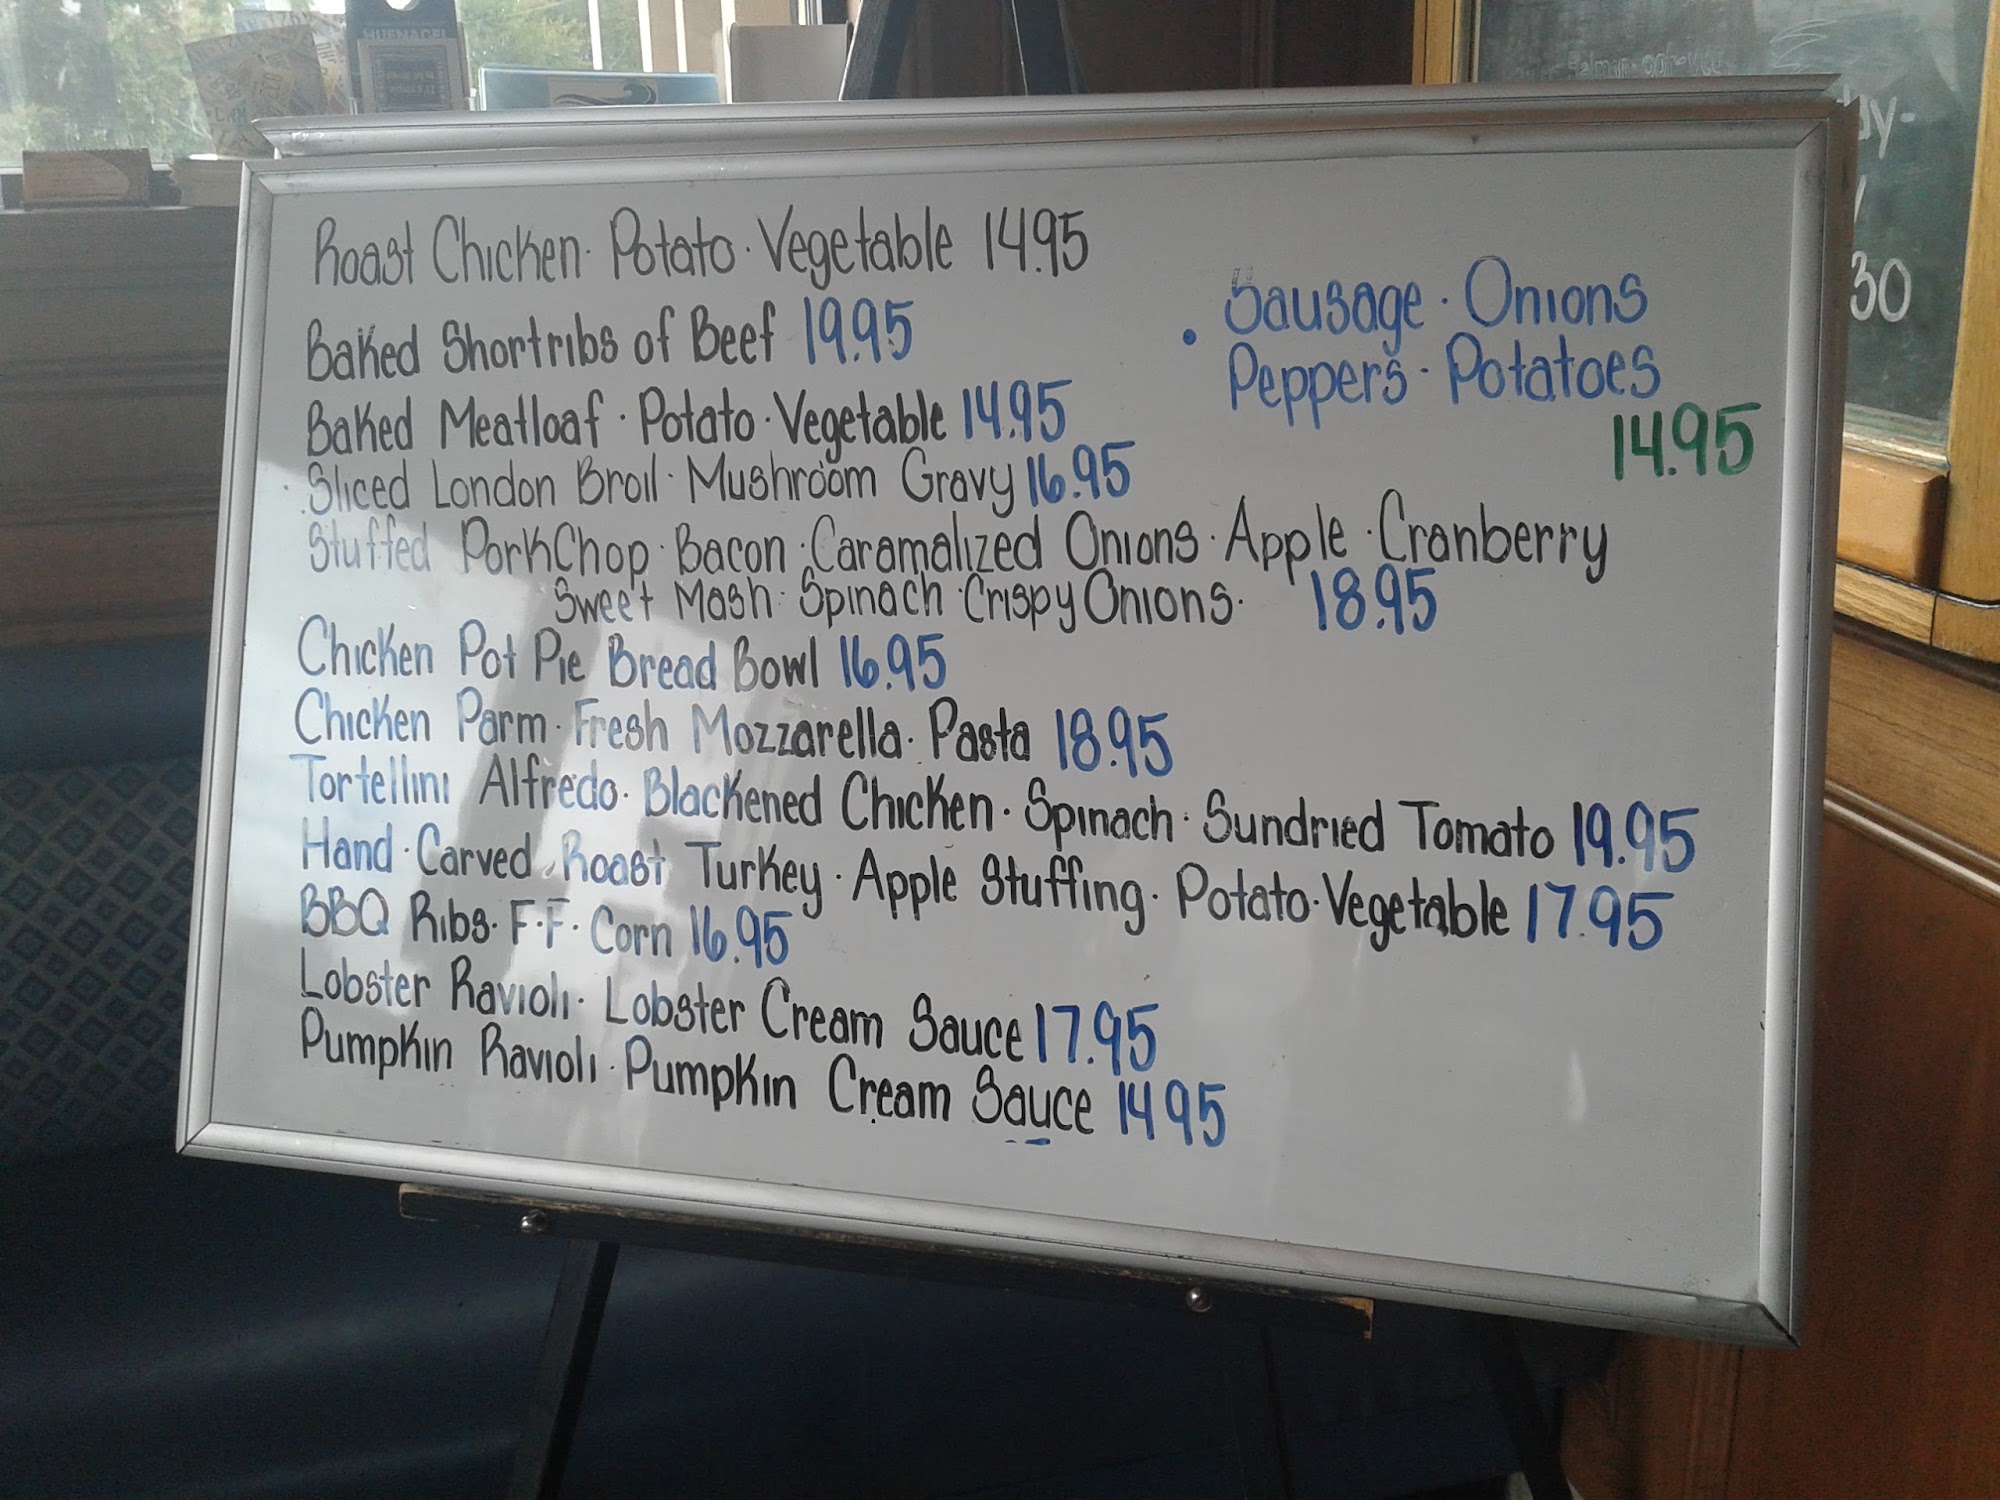 HUENAGEL
Roast Chicken · Potato · Vegetable 14.95
Baked Shortribs of Beef 19.95
Baked Meatloaf · Potato · Vegetable 14.95
· Sausage · Onions
Peppers · Potatoes
14.95
Sliced London Broil · Mushroom Gravy 16.95
Stuffed PorkChop · Bacon · Caramalized Onions · Apple · Cranberry
Sweet Mash · Spinach · Crispy Onions · 18.95
Chicken Pot Pie Bread Bowl 16.95
Chicken Parm · Fresh Mozzarella · Pasta 18.95
Tortellini Alfredo · Blackened Chicken · Spinach · Sundried Tomato 19.95
Hand · Carved Roast Turkey · Apple Stuffing · Potato · Vegetable 17.95
BBQ Ribs · F · F · Corn 16.95
Lobster Ravioli · Lobster Cream Sauce 17.95
Pumpkin Ravioli · Pumpkin Cream Sauce 14 95
30